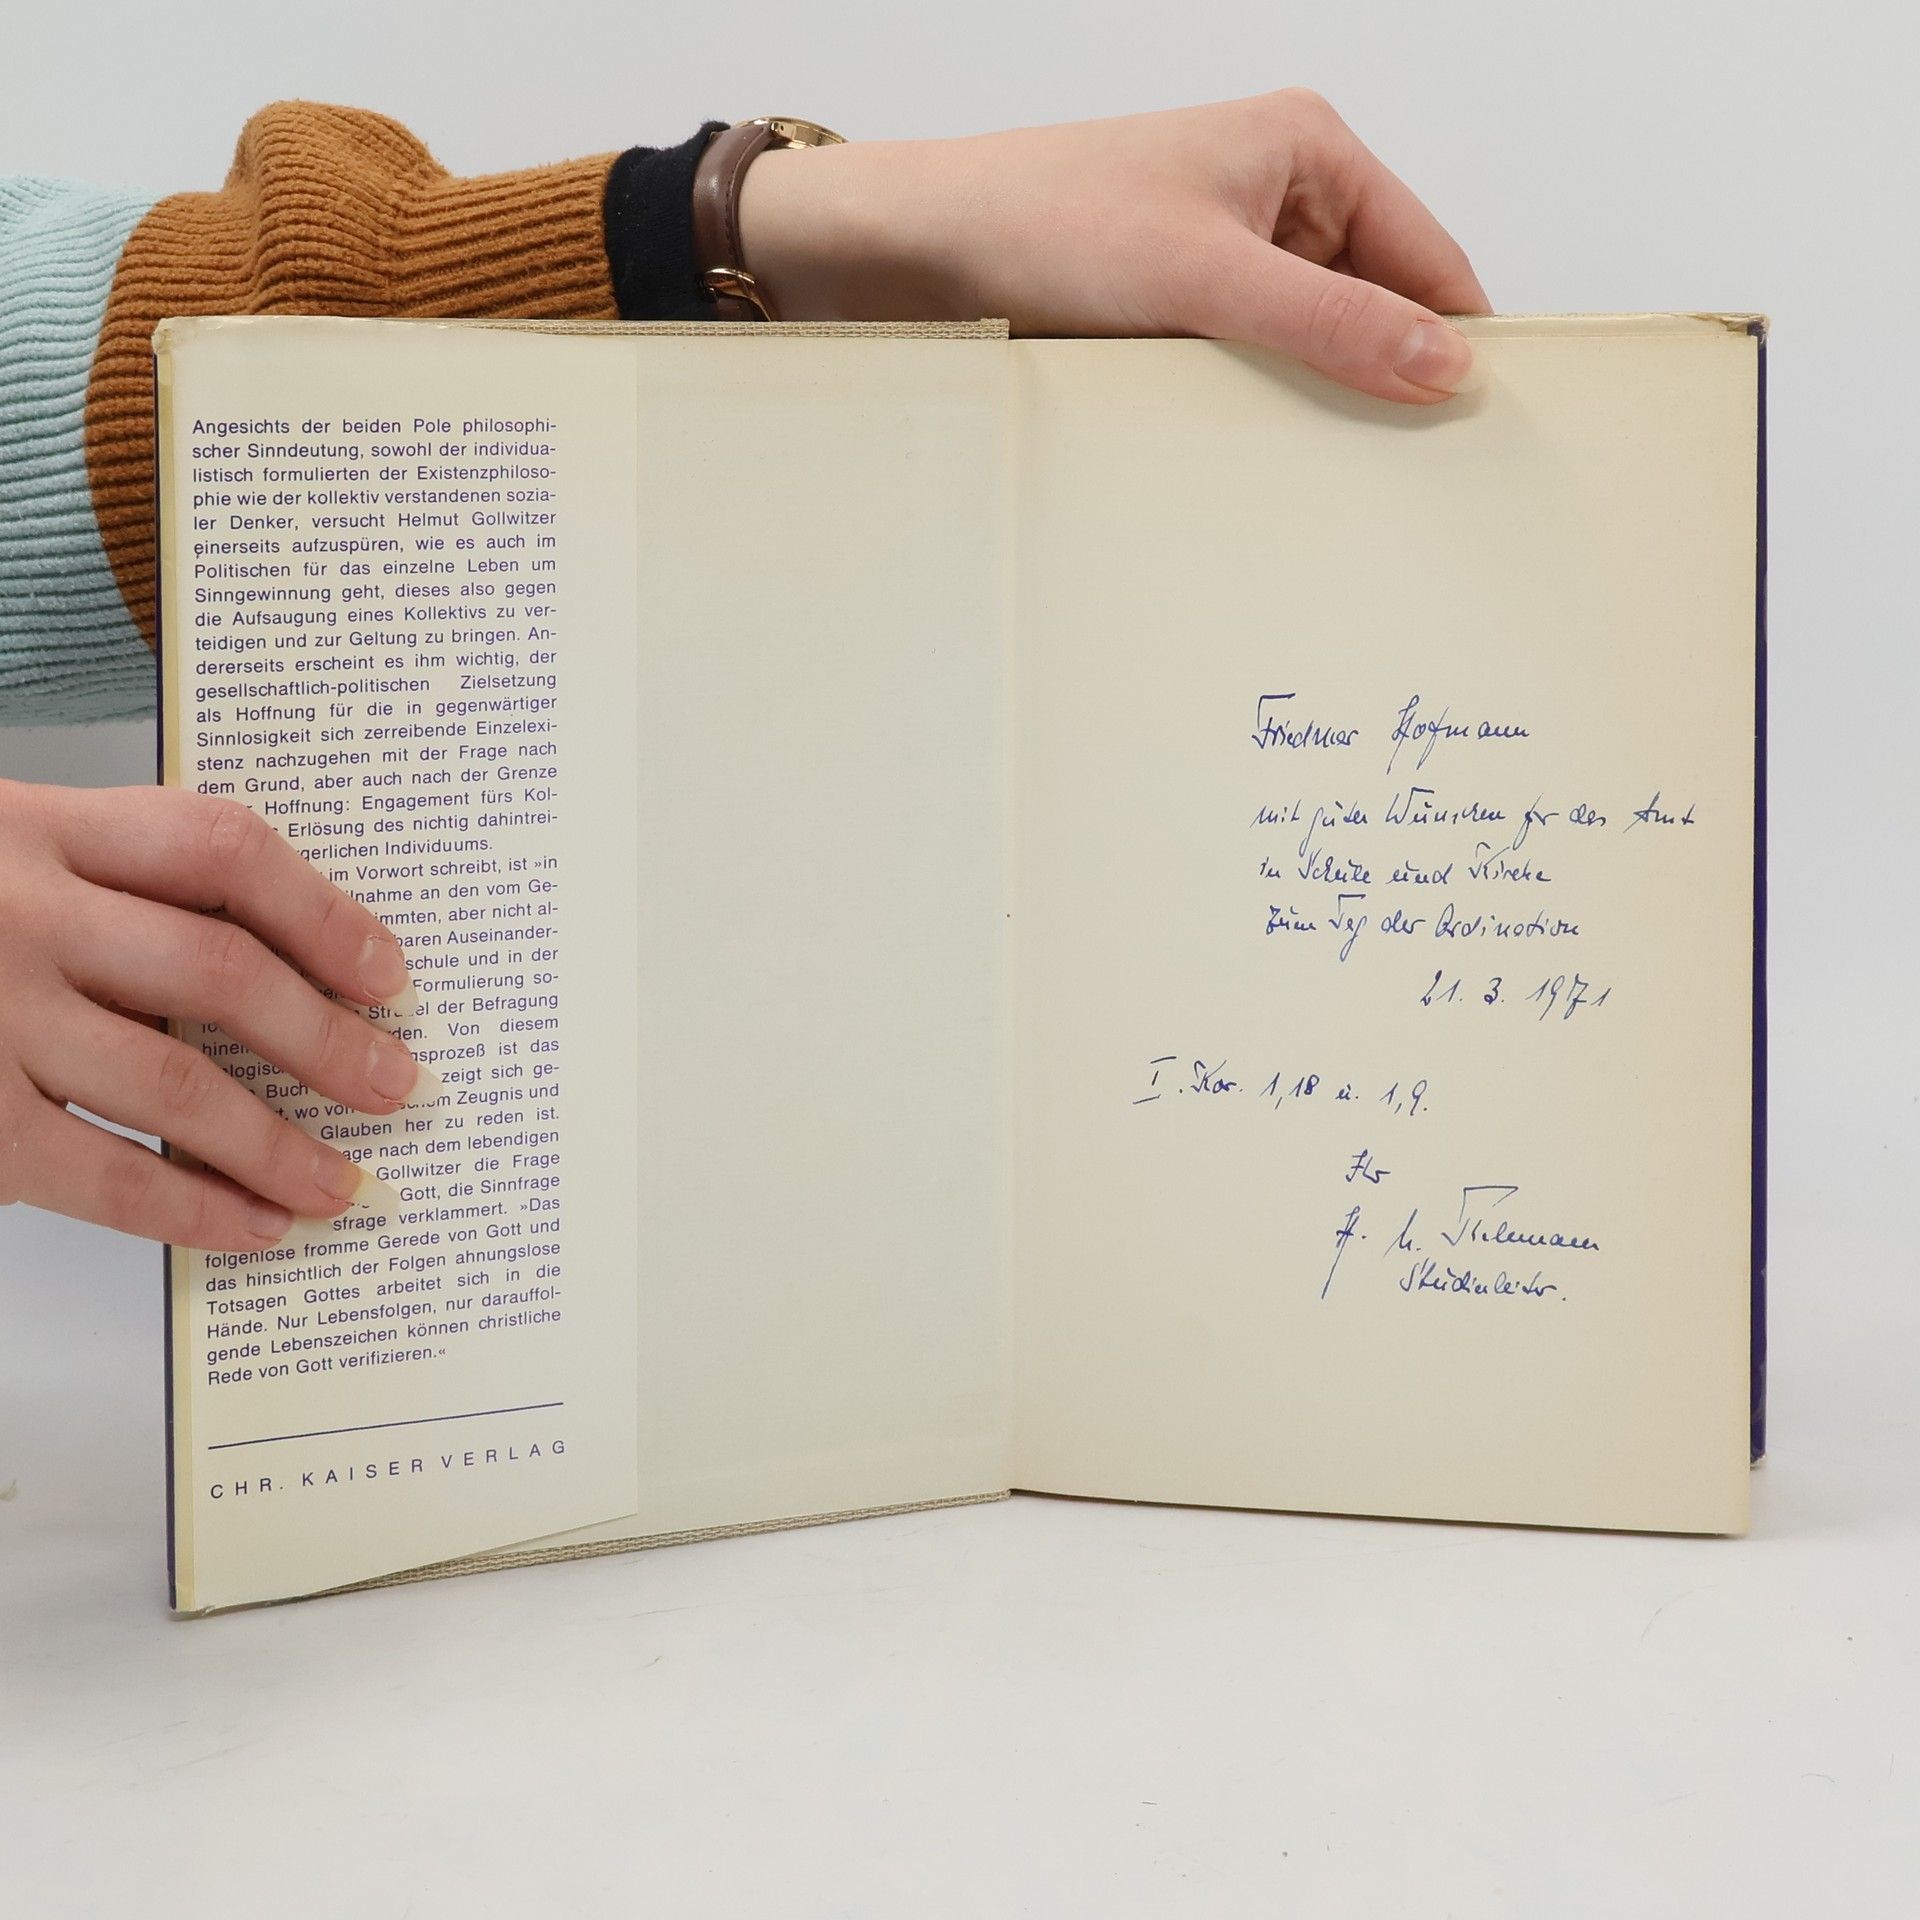 Angesichts der beiden Pole philosophi-
scher Sinndeutung, sowohl der individua-
listisch formulierten der Existenzphiloso-
phie wie der kollektiv verstandenen sozia-
ler Denker, versucht Helmut Gollwitzer
einerseits aufzuspüren, wie es auch im
Politischen für das einzelne Leben um
Sinngewinnung geht, dieses also gegen
die Aufsaugung eines Kollektivs zu ver-
teidigen und zur Geltung zu bringen. An-
dererseits erscheint es ihm wichtig, der
gesellschaftlich-politischen Zielsetzung
als Hoffnung für die in gegenwärtiger
Sinnlosigkeit sich zerreibende Einzelexi-
stenz nachzugehen mit der Frage nach
dem Grund, aber auch nach der Grenze
Hoffnung: Engagement fürs Kol-
Erlösung des nichtig dahintrei-
gerlichen Individuums.
im Vorwort schreibt, ist »in
lnahme an den vom Ge-
immten, aber nicht al-
baren Auseinander-
schule und in der
Formulierung so-
der Befragung
den. Von diesem
gsprozeß ist das
zeigt sich ge-
Buch
wo von Zeugnis und
Glauben her zu reden ist.
age nach dem lebendigen
Gollwitzer die Frage
Gott, die Sinnfrage
sfrage verklammert. »Das
folgenlose fromme Gerede von Gott und
das hinsichtlich der Folgen ahnungslose
Totsagen Gottes arbeitet sich in die
Hände. Nur Lebensfolgen, nur darauffol-
gende Lebenszeichen können christliche
Rede von Gott verifizieren.«
CHR. KAISER VERLAG
Hofmann
mit guten Wünschen für das Amt
in Schule und Kirche
zum Tag der Ordination
21. 3. 1971
I. Kor. 1,18 u. 1,9.
Ihr
H.
Studienleiter.